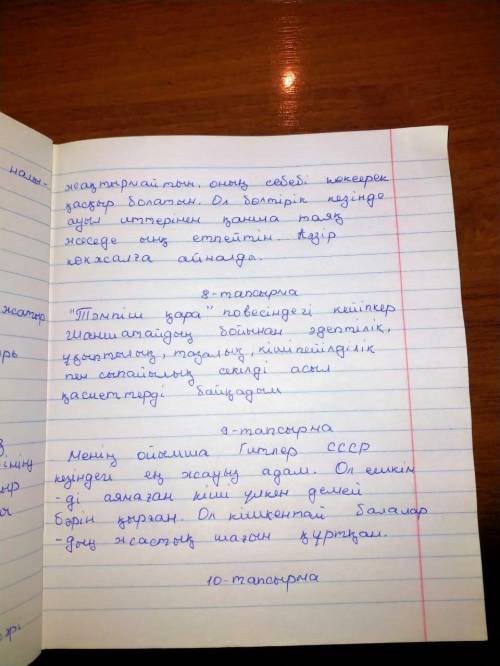 налы-
жақтырмайтын, оның себебі көксерек
қасқыр болатын. Ол бөлтірік кезінде
ауыл иттерінен қанша таяқ
жеседе ыңқ етпейтін. Қазір
көкжалға айналды.
8-тапсырма
"Тәмпіш қара" повесіндегі кейіпкер
Шаншатайдың бойынан әдептілік,
ұқыптылық, тазалық, кішіпейілділік
пен сыпайылық секілді асыл
қасиеттерді байқадым
9-тапсырма
Менің ойымша Гитлер СССР
кезіндегі ең жауыз адам. Ол ешкім
-ді аямаған кіші үлкен демей
бәрін қырған. Ол кішкентай балалар
-дың жастық шағын құртқан.
10-тапсырма
жатыр